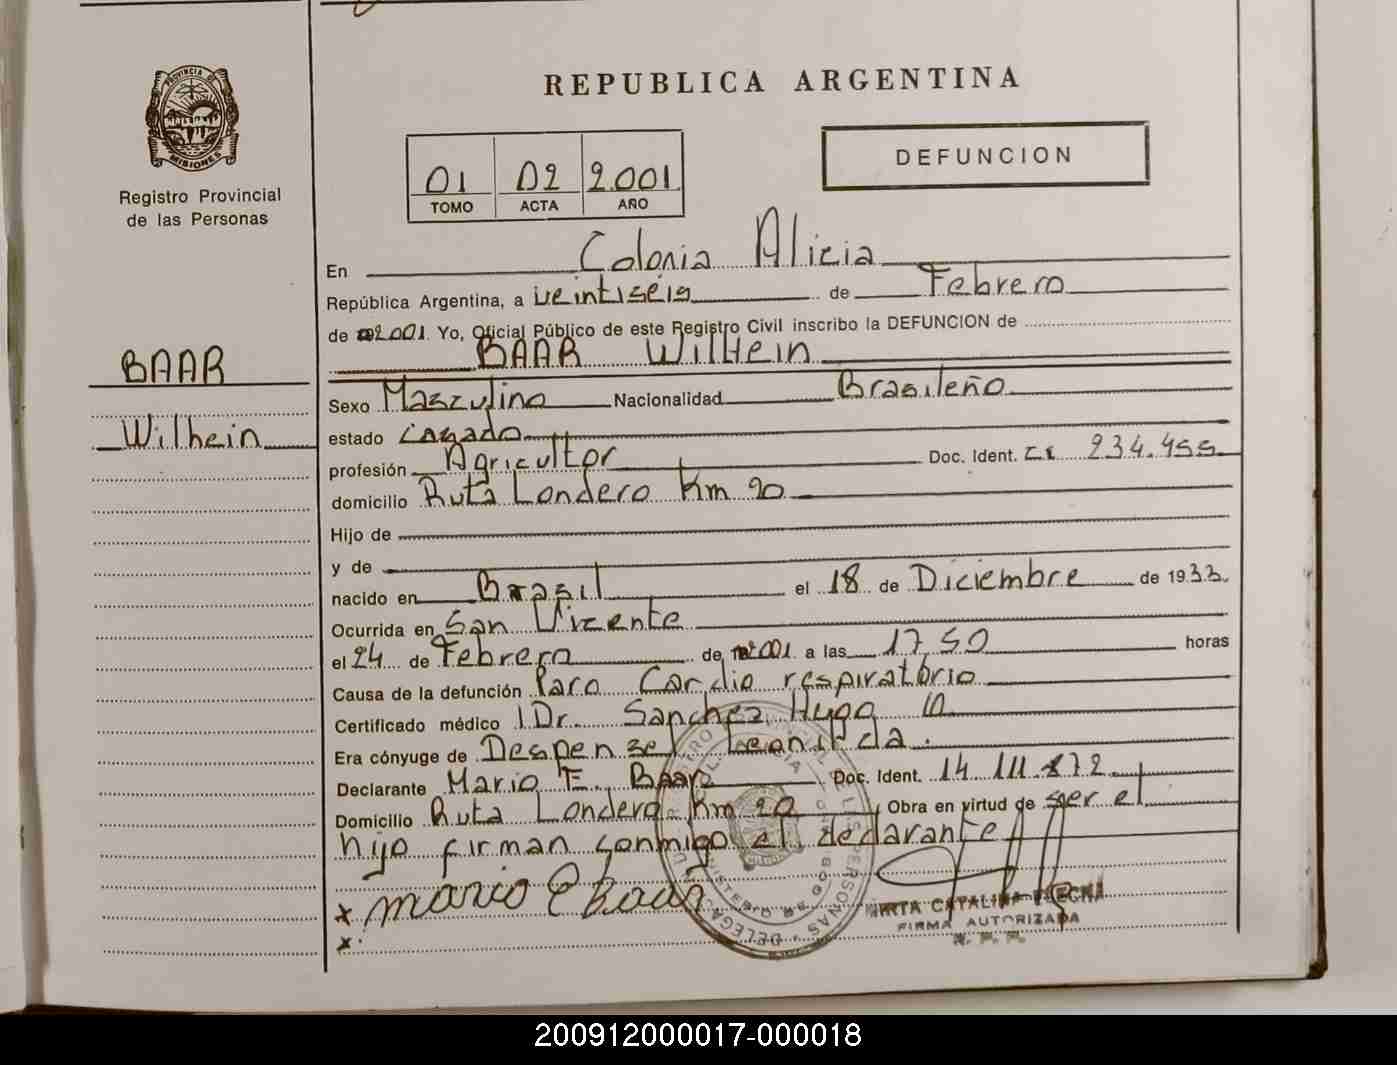 PROVINCIA DE
MISIONES
Registro Provincial
de las Personas
REPUBLICA ARGENTINA
01 02 2.001
TOMO ACTA AÑO
DEFUNCION
BAAR
Wilhein
En Colonia Alicia
República Argentina, a veintiseis de Febrero
de 2.001. Yo, Oficial Público de este Registro Civil inscribo la DEFUNCION de
BAAR WilHein
Sexo Masculino Nacionalidad Brasileño
estado Casado
profesión Agricultor Doc. Ident. CI 234.455
domicilio Ruta Londero Km 20
Hijo de
y de
nacido en Brasil el 18 de Diciembre de 1933.
Ocurrida en San Vicente
el 24 de Febrero de 2001 a las 17,50 horas
Causa de la defunción Paro Cardio respiratorio
Certificado médico Dr. Sanchez Hugo
Era cónyuge de Leonilda.
Declarante Mario E. Baar Doc. Ident. 14.111.872
Domicilio Ruta Londero Km 20 Obra en virtud de ser el
hijo firman conmigo el declarante
x Mario E Baar
x.
CATALINA
FIRMA AUTORIZADA
DE LAS PERSONAS
MINISTERIO DE GOB
200912000017-000018